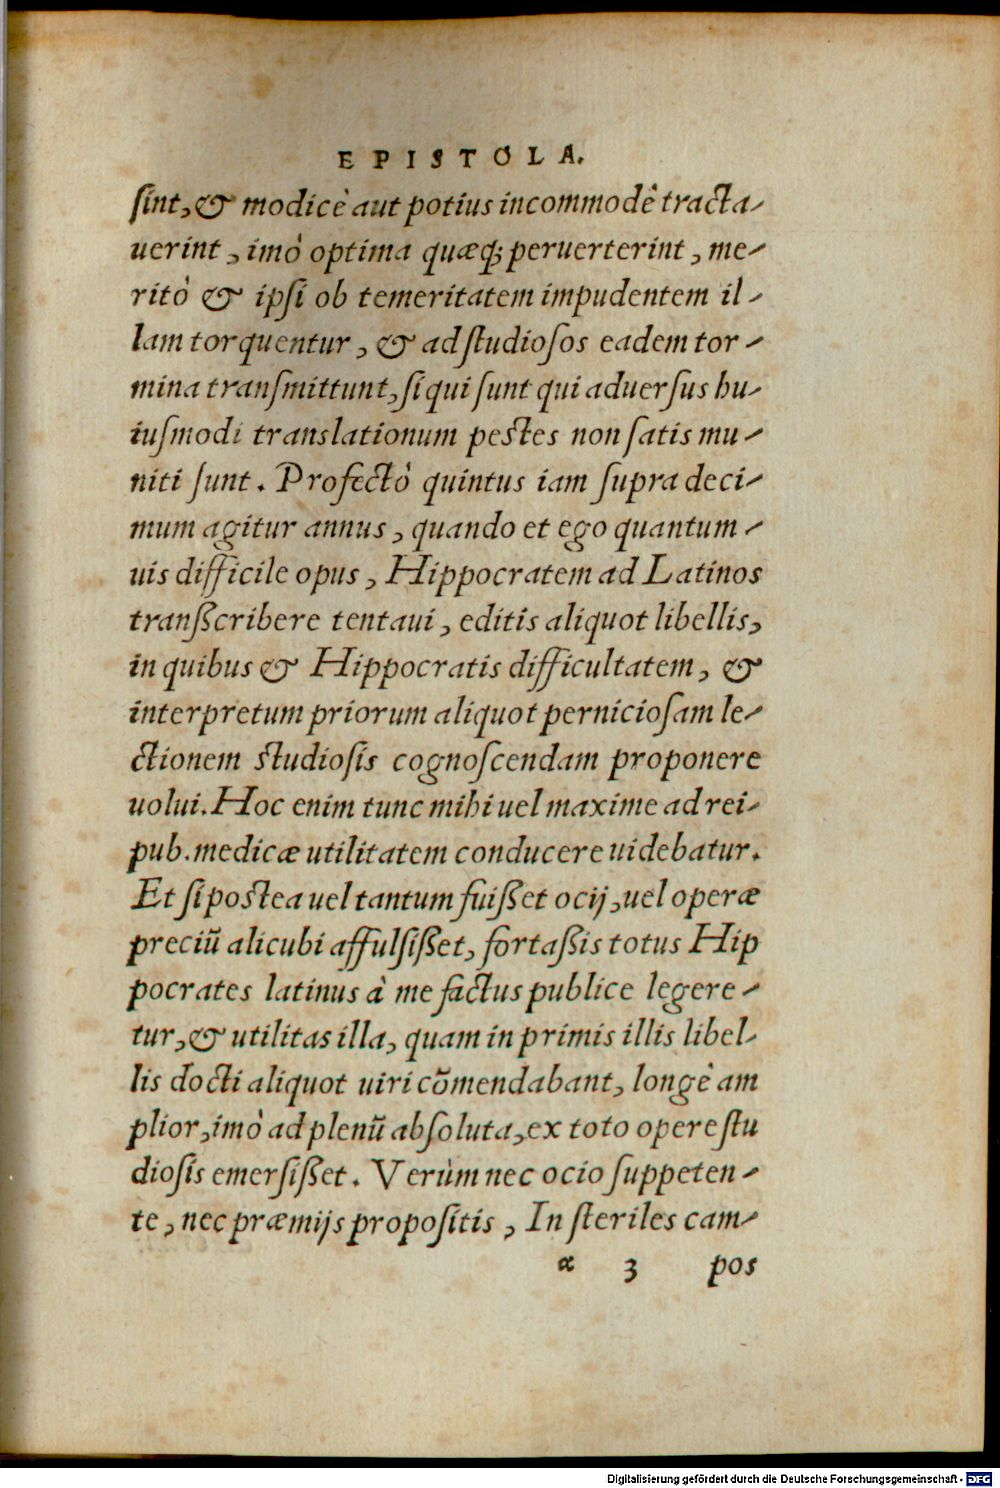 EPISTOLA.
ſint, & modicè aut potius incommodê tracta-
uerint, imò optima quæq; peruerterint, me-
ritò & ipſi ob temeritatem impudentem il-
lam torquentur, & ad ſtudioſos eadem tor-
mina tranſmittunt, ſi qui ſunt qui aduerſus hu-
iuſmodi translationum peſtes non ſatis mu-
niti ſunt. Profectò quintus iam ſupra deci-
mum agitur annus, quando et ego quantum-
uis difficile opus, Hippocratem ad Latinos
tranßcribere tentaui, editis aliquot libellis,
in quibus & Hippocratis difficultatem, &
interpretum priorum aliquot pernicioſam le-
ctionem ſtudioſis cognoſcendam proponere
uolui. Hoc enim tunc mihi uel maxime ad rei-
pub. medicæ utilitatem conducere uidebatur.
Et ſi poſtea uel tantum fuißet ocij, uel operæ
preciũ alicubi affulſißet, fortaßis totus Hip
pocrates latinus à me factus publice legere-
tur, & utilitas illa, quam in primis illis libel-
lis docti aliquot uiri cõmendabant, longè am
plior, imò ad plenũ abſoluta, ex toto opere ſtu
dioſis emerſißet. Verùm nec ocio ſuppeten-
te, nec præmijs propoſitis, In ſteriles cam-
α 3 pos
Digitalisierung gefördert durch die Deutsche Forschungsgemeinschaft - DFG